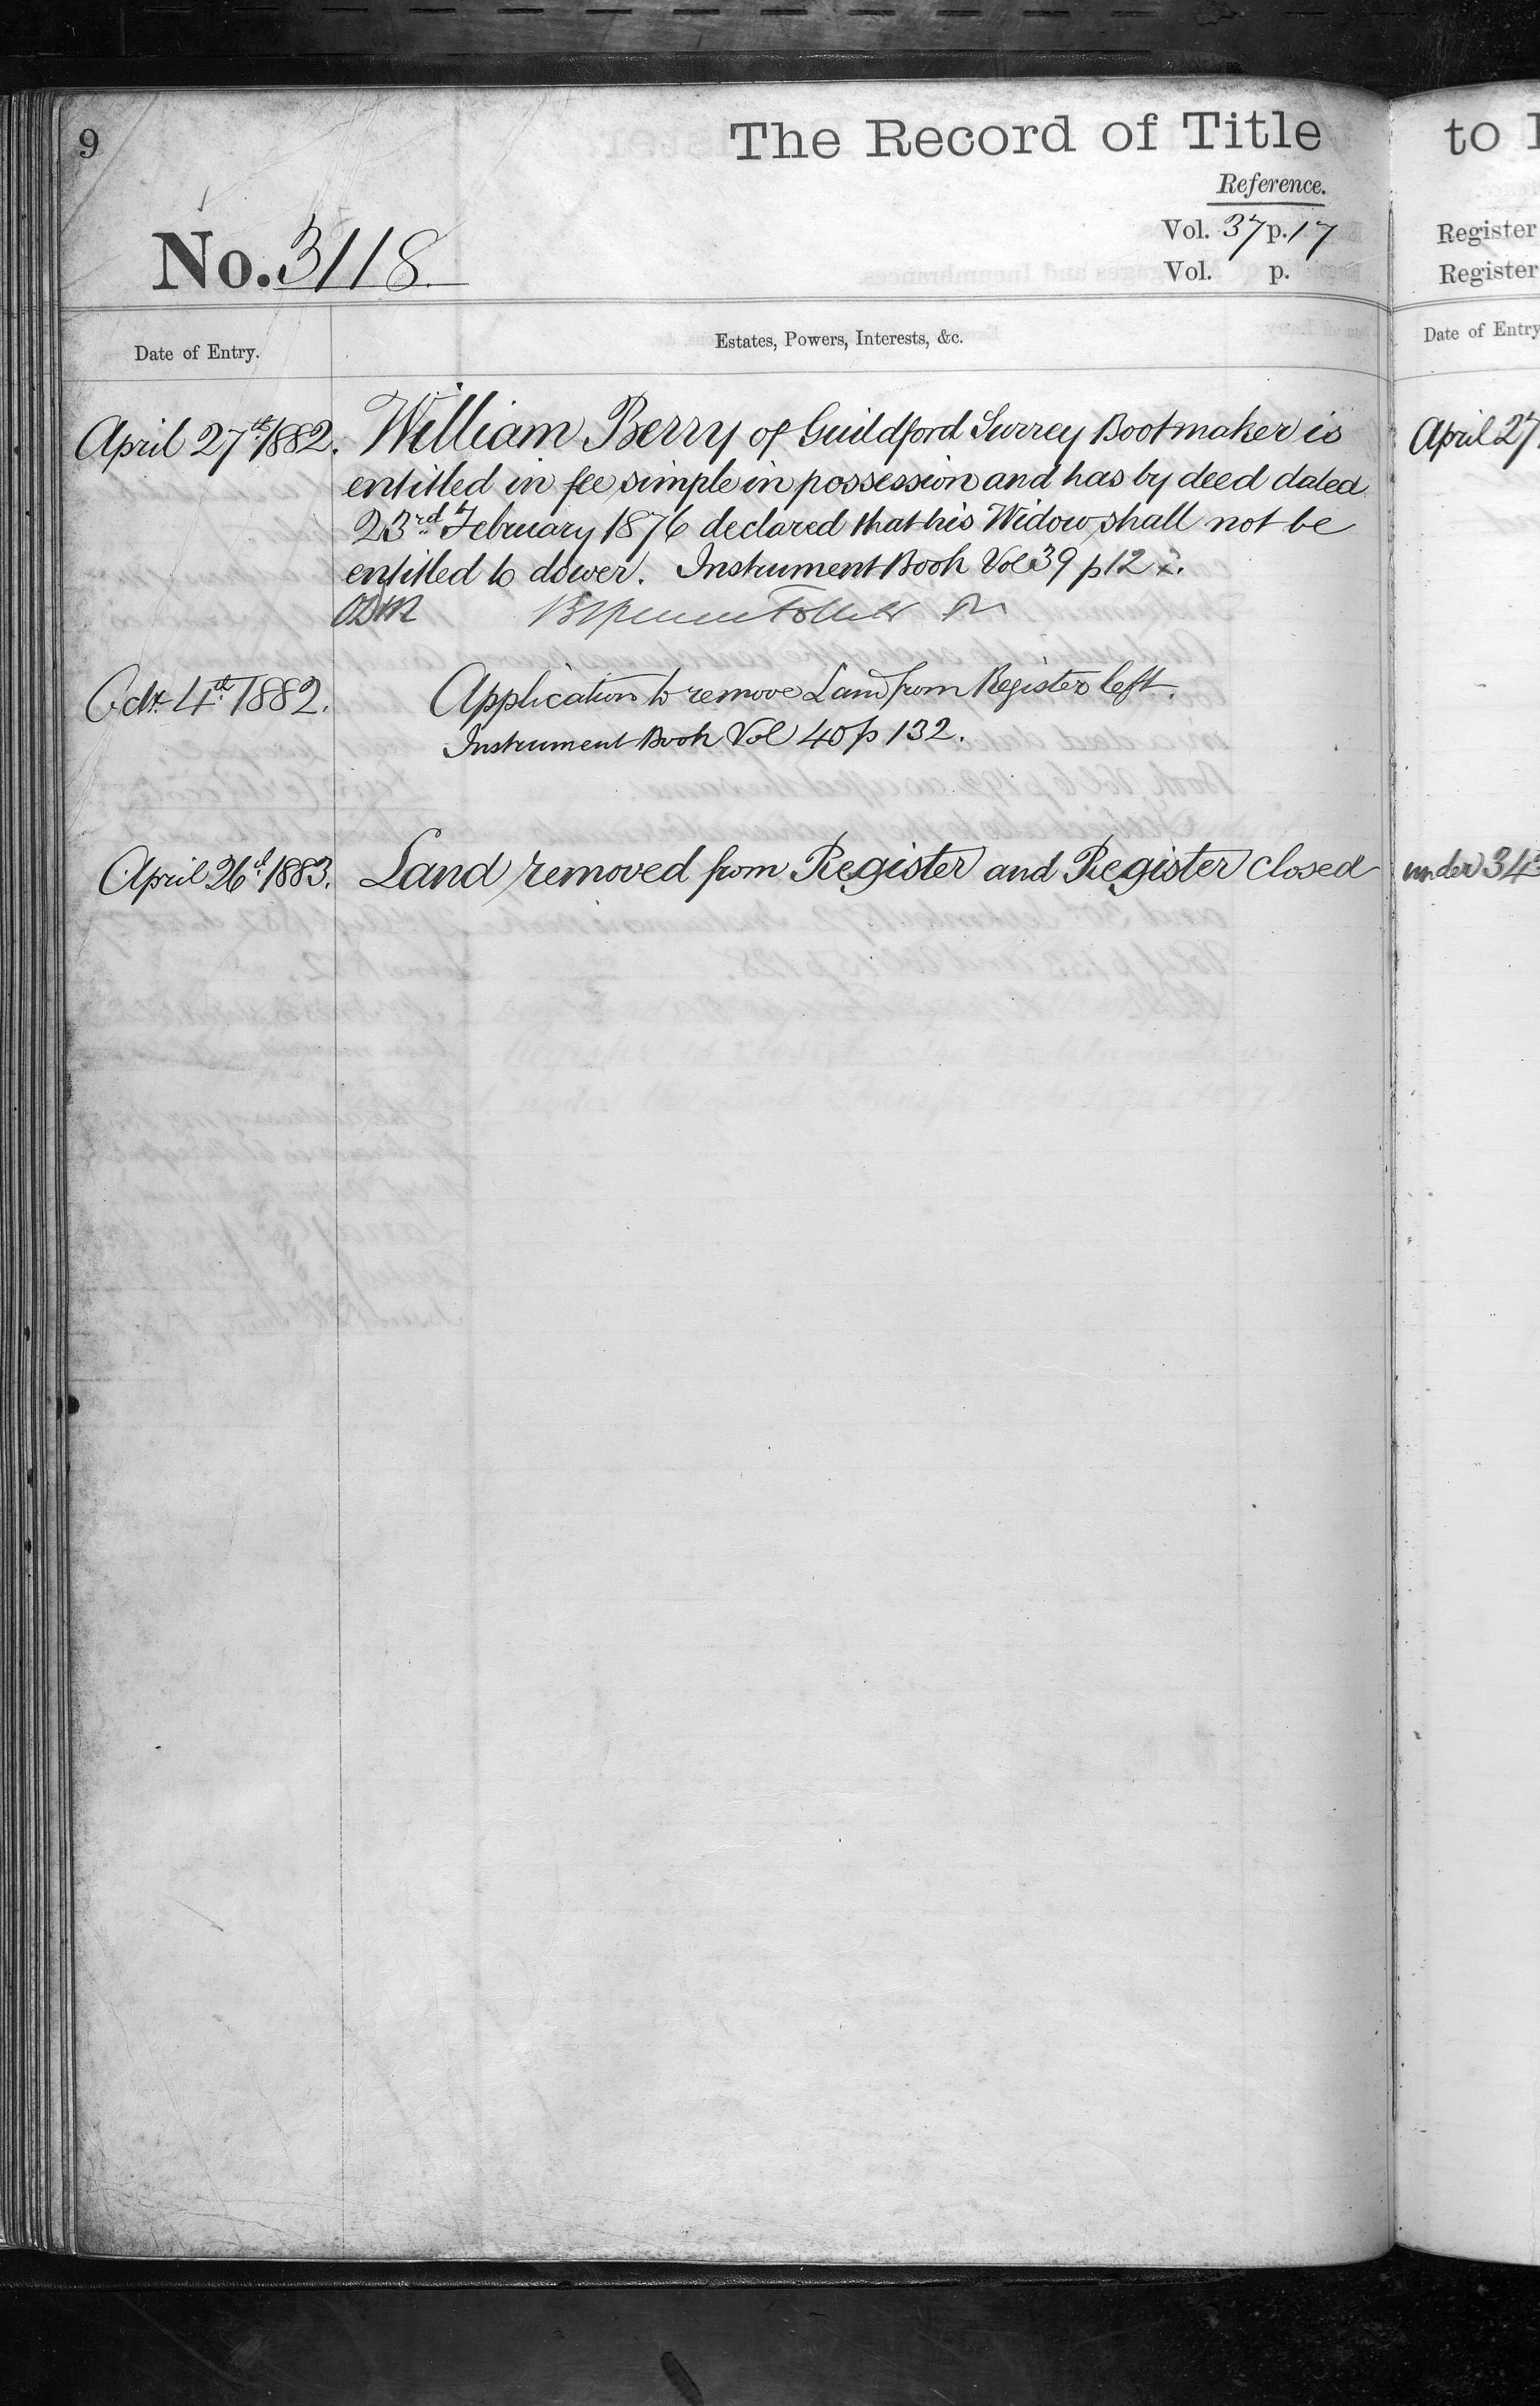 9
The Record of Title
Reference.
No. 3118.
Vol. 37 p. 17
Vol. p.
Date of Entry.
Estates, Powers, Interests, &c.
April 27th 1882. William Berry of Guildford Surrey Bootmaker is
entitled in fee simple in possession and has by deed dated
23rd February 1876 declared that his Widow shall not be
entitled to dower. Instrument Book Vol 39 p 12
Octr. 4th 1882. Application to remove Land from Register left.
Instrument Book Vol 40 p 132.
April 26th 1883. Land removed from Register and Register closed
to
Register
Register
Date of Entry
April 27
under 34